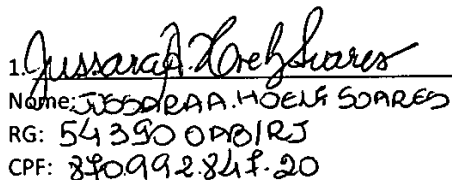 1. Jussara A. Hoelz Soares
Nome: JUSSARA A. HOELZ SOARES
RG: 54390 OAB/RJ
CPF: 870.992.847.20